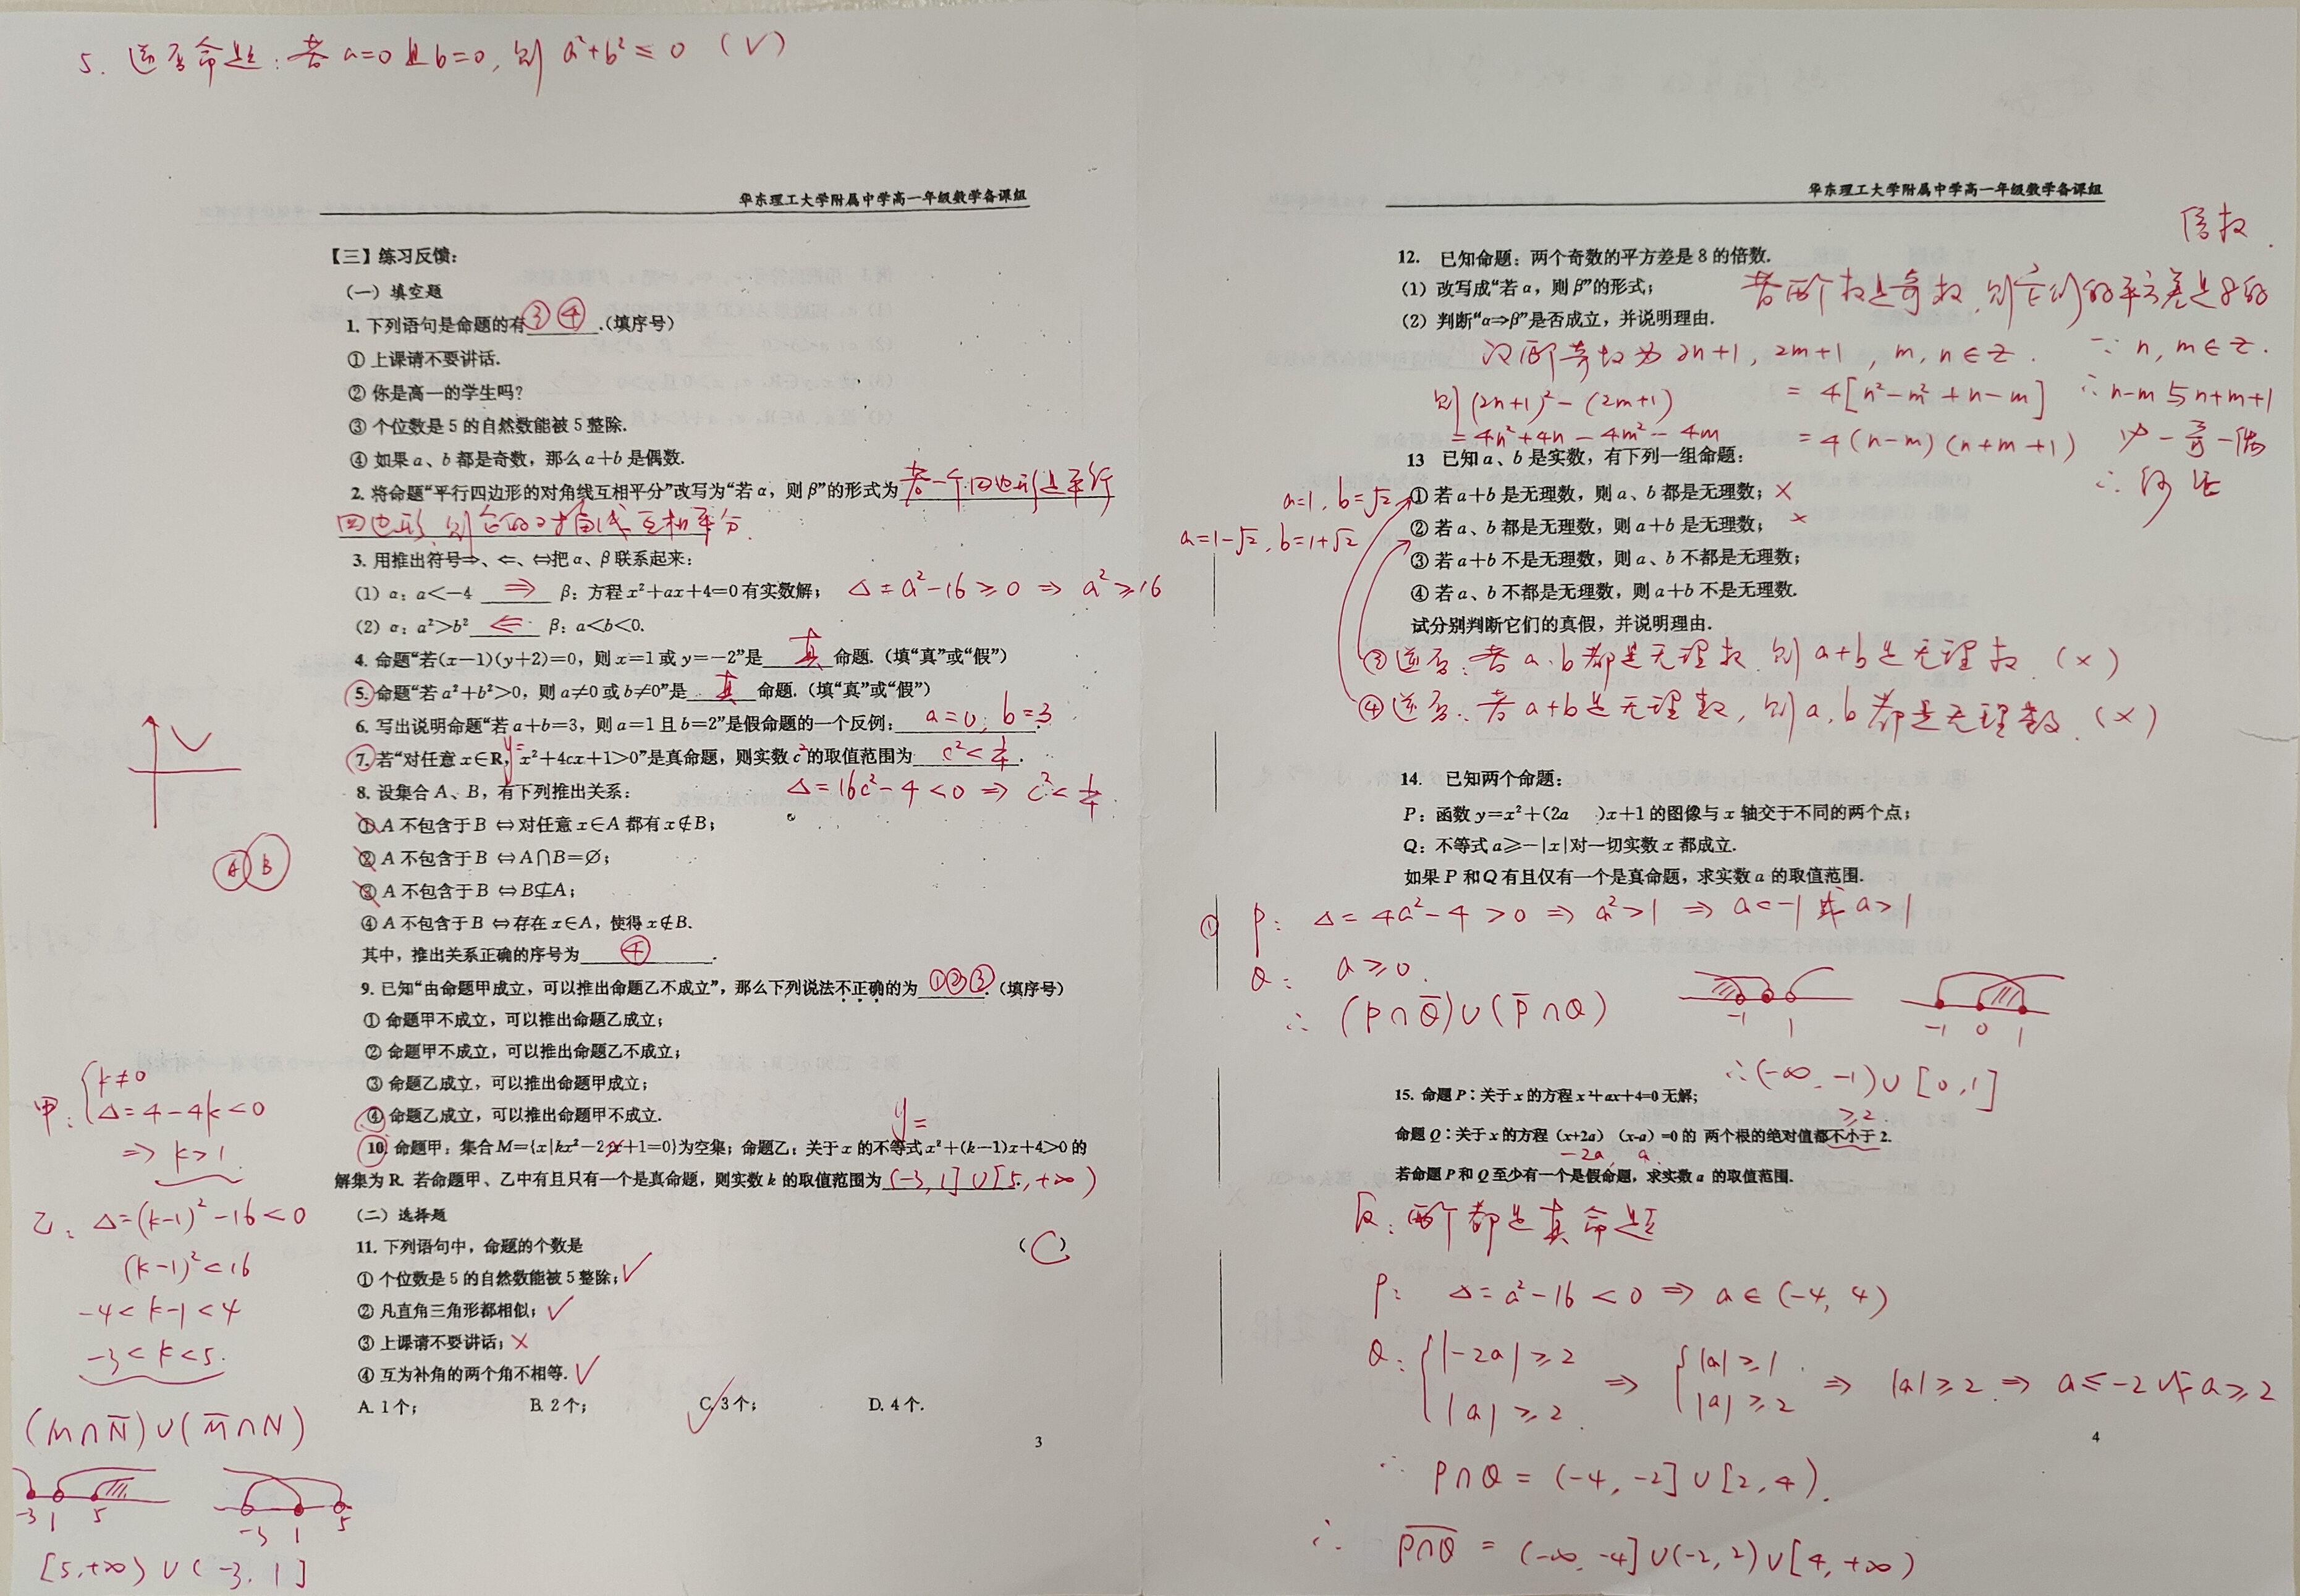 5. 逆否命题：若 a=0 且 b=0, 则 a²+b²≤0 (√)
华东理工大学附属中学高一年级数学备课组
【三】练习反馈：
（一）填空题
1. 下列语句是命题的有 ③④ .（填序号）
① 上课请不要讲话.
② 你是高一的学生吗？
③ 个位数是 5 的自然数能被 5 整除.
④ 如果 a、b 都是奇数，那么 a+b 是偶数.
2. 将命题“平行四边形的对角线互相平分”改写为“若 α，则 β”的形式为 若一个四边形是平行
四边形, 则它的对角线互相平分.
3. 用推出符号⇒、⇐、⇔把 α、β 联系起来：
（1）α：a<−4 ⇒ β：方程 x²+ax+4=0 有实数解； Δ=a²-16≥0 ⇒ a²≥16
（2）α：a²>b² ⇐ β：a<b<0.
4. 命题“若(x−1)(y+2)=0，则 x=1 或 y=−2”是 真 命题.（填“真”或“假”）
5. 命题“若 a²+b²>0，则 a≠0 或 b≠0”是 真 命题.（填“真”或“假”）
6. 写出说明命题“若 a+b=3，则 a=1 且 b=2”是假命题的一个反例： a=0, b=3 .
7. 若“对任意 x∈R, y= x²+4cx+1>0”是真命题，则实数 c² 的取值范围为 c²<1/4 .
Δ=16c²-4<0 ⇒ c²<1/4.
8. 设集合 A、B，有下列推出关系：
① A 不包含于 B ⇔ 对任意 x∈A 都有 x∉B；
② A 不包含于 B ⇔ A∩B=∅；
A B
③ A 不包含于 B ⇔ B⊈A；
④ A 不包含于 B ⇔ 存在 x∈A，使得 x∉B.
其中，推出关系正确的序号为 ④ .
9. 已知“由命题甲成立，可以推出命题乙不成立”，那么下列说法不正确的为 ①②③ .（填序号）
① 命题甲不成立，可以推出命题乙成立；
② 命题甲不成立，可以推出命题乙不成立；
③ 命题乙成立，可以推出命题甲成立；
④ 命题乙成立，可以推出命题甲不成立.
y=
10. 命题甲：集合 M={x|kx²−2x+1=0}为空集；命题乙：关于 x 的不等式 x²+(k−1)x+4>0 的
解集为 R. 若命题甲、乙中有且只有一个是真命题，则实数 k 的取值范围为 (-3,1]∪[5,+∞)
甲: { k≠0
Δ=4-4k<0
⇒ k>1
乙: Δ=(k-1)²-16<0
(k-1)²<16
-4<k-1<4
-3<k<5.
(M∩N̅)∪(M̅∩N)
-3 1 5
-3 1 5
[5,+∞)∪(-3,1]
（二）选择题
11. 下列语句中，命题的个数是 ( C )
① 个位数是 5 的自然数能被 5 整除； √
② 凡直角三角形都相似； √
③ 上课请不要讲话； ×
④ 互为补角的两个角不相等. √
A. 1 个； B. 2 个； C. 3 个； D. 4 个.
3
华东理工大学附属中学高一年级数学备课组
12. 已知命题：两个奇数的平方差是 8 的倍数.
（1）改写成“若 α，则 β”的形式； 若两个数是奇数, 则它们的平方差是8的
倍数.
（2）判断“α⇒β”是否成立，并说明理由.
设两奇数为 2n+1, 2m+1, m,n∈Z.
则 (2n+1)²-(2m+1)
=4n²+4n-4m²-4m
=4[n²-m²+n-m]
=4(n-m)(n+m+1)
∵ n,m∈Z.
∴ n-m与n+m+1
必一奇一偶
∴ 得证
13 已知 a、b 是实数，有下列一组命题：
a=1, b=√2 ① 若 a+b 是无理数，则 a、b 都是无理数； ×
a=1-√2, b=1+√2 ② 若 a、b 都是无理数，则 a+b 是无理数； ×
③ 若 a+b 不是无理数，则 a、b 不都是无理数；
④ 若 a、b 不都是无理数，则 a+b 不是无理数.
试分别判断它们的真假，并说明理由.
③逆否: 若 a、b 都是无理数, 则 a+b 是无理数 (×)
④逆否: 若 a+b 是无理数, 则 a,b 都是无理数. (×)
14. 已知两个命题：
P：函数 y=x²+(2a )x+1 的图像与 x 轴交于不同的两个点；
Q：不等式 a≥−|x|对一切实数 x 都成立.
如果 P 和 Q 有且仅有一个是真命题，求实数 a 的取值范围.
① P: Δ=4a²-4>0 ⇒ a²>1 ⇒ a<-1 或 a>1
Q: a≥0.
∴ (P∩Q̅)∪(P̅∩Q)
-1 1
-1 0 1
∴(-∞,-1)∪[0,1]
15. 命题 P：关于 x 的方程 x²+ax+4=0 无解；
≥2
命题 Q：关于 x 的方程 (x+2a) (x-a) =0 的 两个根的绝对值都不小于 2.
-2a, a
若命题 P 和 Q 至少有一个是假命题，求实数 a 的取值范围.
反: 两个都是真命题
P: Δ=a²-16<0 ⇒ a∈(-4,4)
Q: { |-2a|≥2 |a|≥2 ⇒ { |a|≥1 |a|≥2 ⇒ |a|≥2 ⇒ a≤-2 或 a≥2
∴ P∩Q = (-4,-2]∪[2,4).
∴ P∩Q̅ = (-∞,-4]∪(-2,2)∪[4,+∞)
4